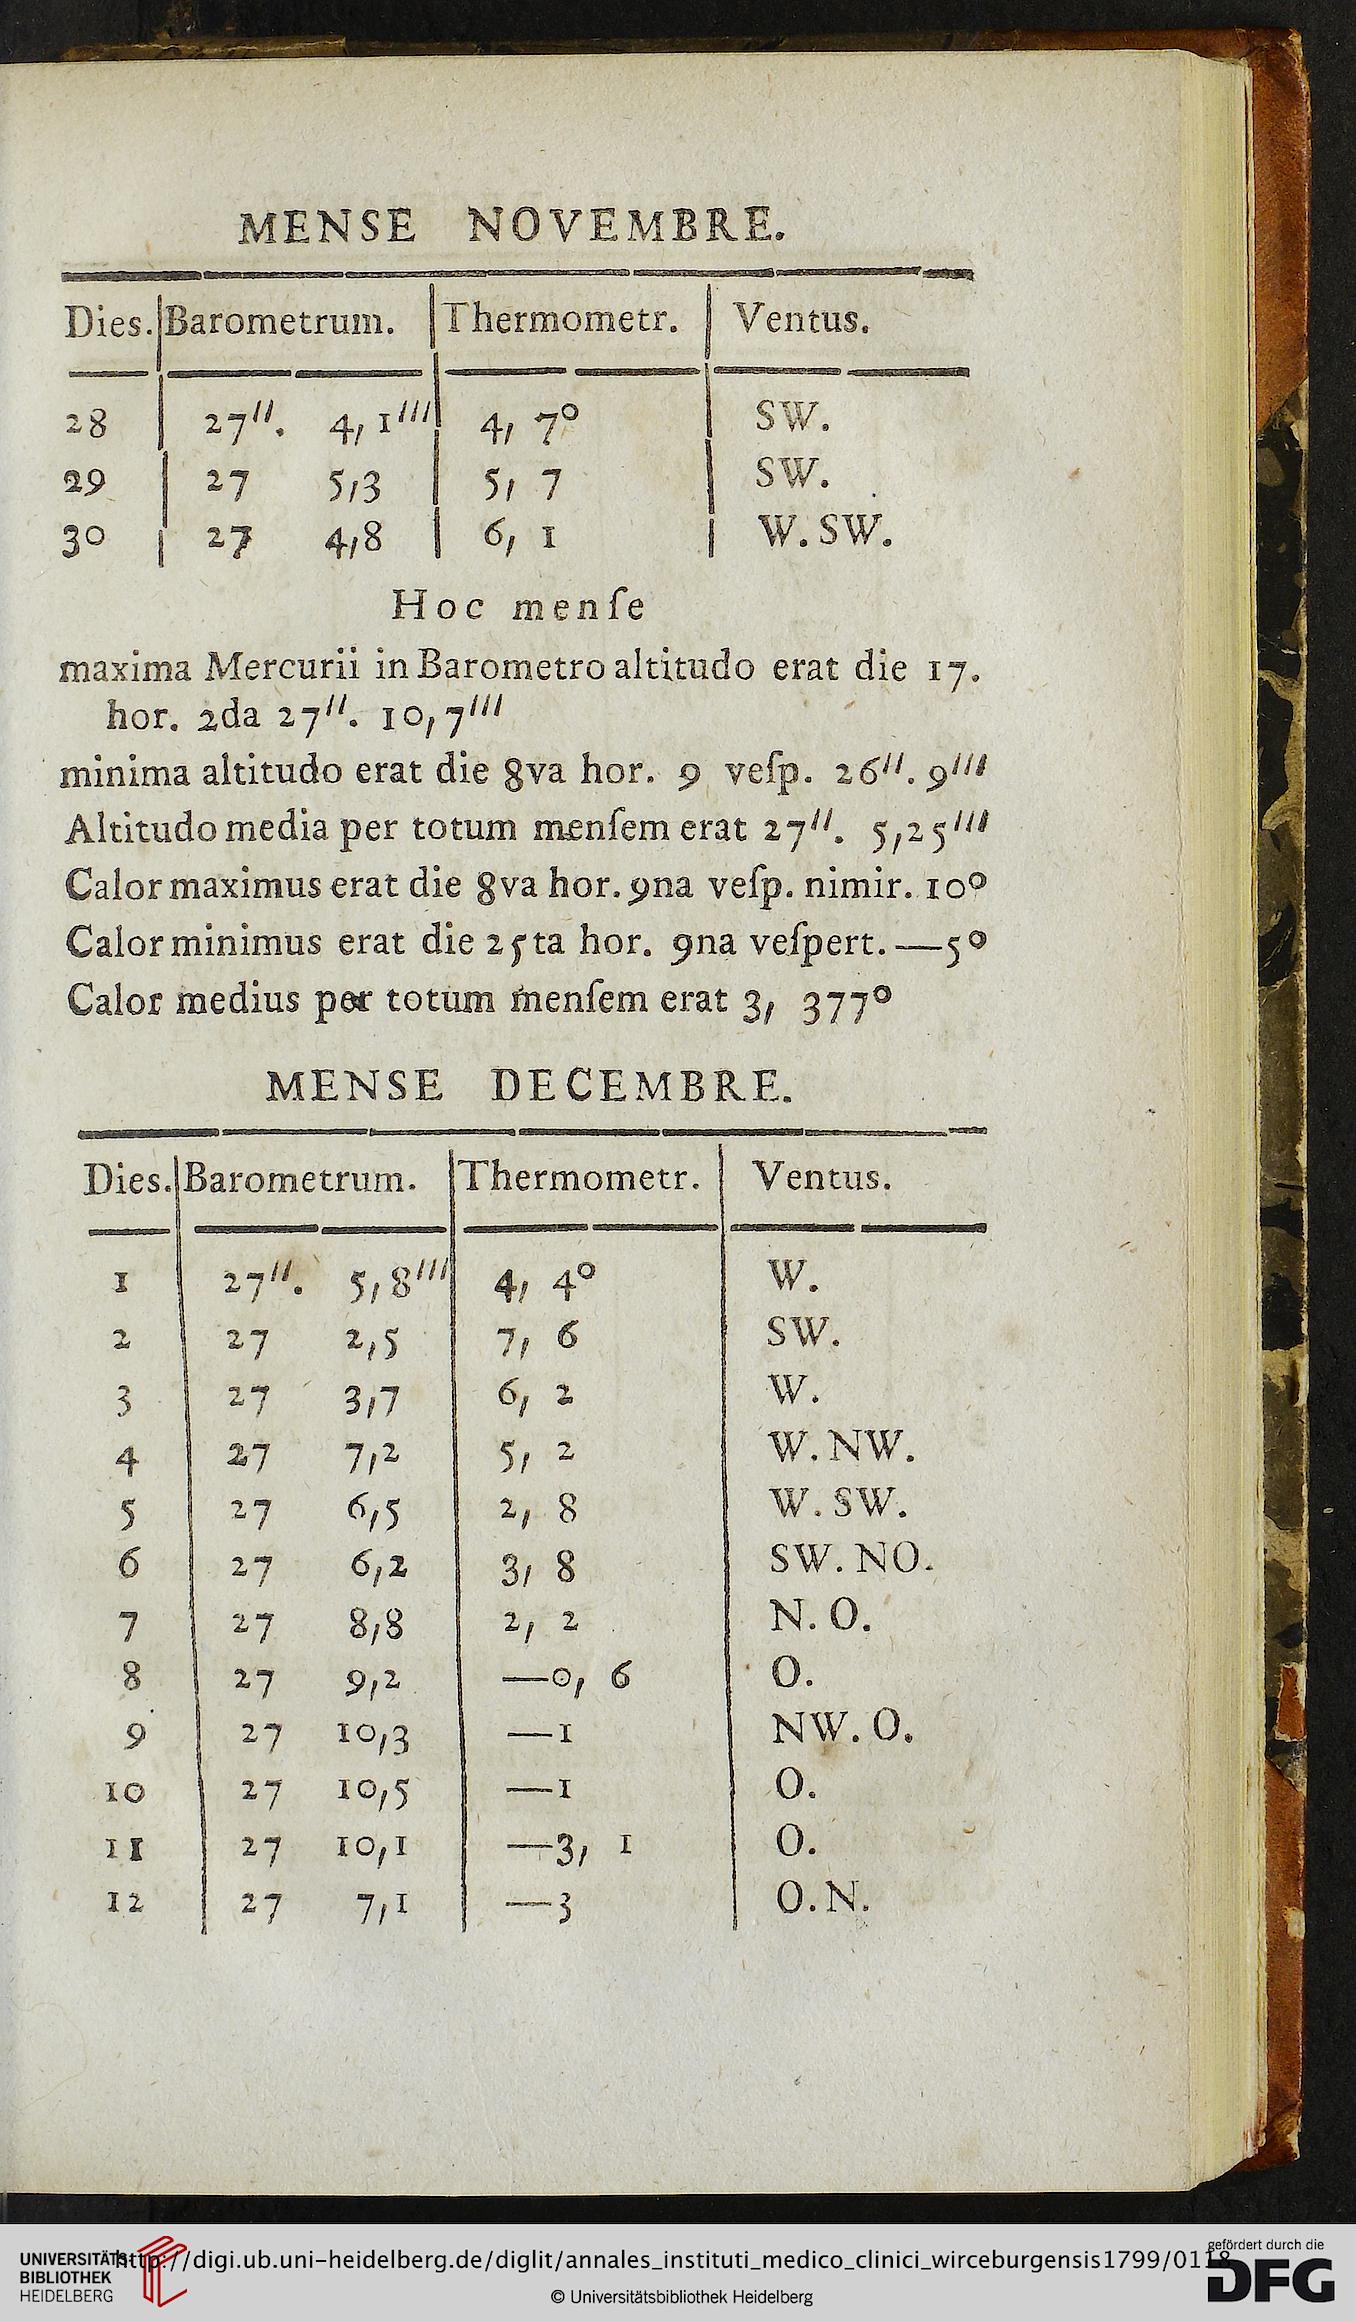 MENSE NOVEMBRE.
Dies. Barometrum. Thermometr. Ventus.
28 27′′. 4,1′′′ 4, 7° SW.
29 27 5,3 5, 7 SW.
30 27 4,8 6, 1 W. SW.
Hoc menſe
maxima Mercurii in Barometro altitudo erat die 17.
hor. 2da 27′′. 10,7′′′
minima altitudo erat die 8va hor. 9 veſp. 26′′. 9′′′
Altitudo media per totum menſem erat 27′′. 5,25′′′
Calor maximus erat die 8va hor. 9na veſp. nimir. 10°
Calor minimus erat die 25ta hor. 9na veſpert. —5°
Calor medius per totum menſem erat 3, 377°
MENSE DECEMBRE.
Dies. Barometrum. Thermometr. Ventus.
1 27′′. 5,8′′′ 4, 4° W.
2 27 2,5 7, 6 SW.
3 27 3,7 6, 2 W.
4 27 7,2 5, 2 W. NW.
5 27 6,5 2, 8 W. SW.
6 27 6,2 3, 8 SW. NO.
7 27 8,8 2, 2 N. O.
8 27 9,2 —0, 6 O.
9 27 10,3 —1 NW. O.
10 27 10,5 —1 O.
11 27 10,1 —3, 1 O.
12 27 7,1 —3 O. N.
UNIVERSITÄTS
BIBLIOTHEK
HEIDELBERG
http://digi.ub.uni-heidelberg.de/diglit/annales_instituti_medico_clinici_wirceburgensis1799/0118
© Universitätsbibliothek Heidelberg
gefördert durch die
DFG